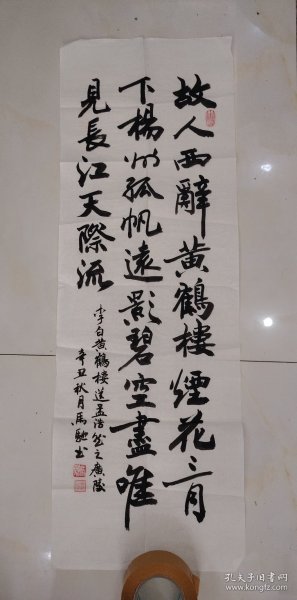 故人西辭黄鶴樓煙花三月
下楊州孤帆遠影碧空盡唯
見長江天際流
李白黄鶴樓送孟浩然之廣陵
辛丑秋月馬馳书
孔夫子旧书网
www.kongfz.com